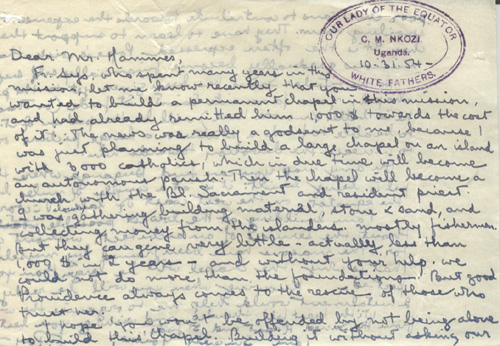 OUR LADY OF THE EQUATOR
C. M. NKOZI
Uganda.
10-31.54-
WHITE FATHERS.
Dear Mr. Hammes,
Fr Says who spent many years in this
mission, let me know recently that you
wanted to build a permanent chapel in this mission,
and had already remitted him 1,000 $ towards the cost
of it. The news was really a godsent to me, because I
was just planning to build a large chapel on an island
with 3000 catholics, which in due time will become
an autonomous parish. Then the chapel will become a
church with the Bl. Sacrament and resident priest.
I was gathering building material, stone & sand, and
collecting money from the islanders - mostly fishermen.
But they can give very little - actually, less than
1,000 $ in 2 years - and without your help, we
could not do more than the foundations! But good
Providence always comes to the rescue of those who
trust her.
I hope you won't be offended by not being alone
to build this chapel. Building it without asking our